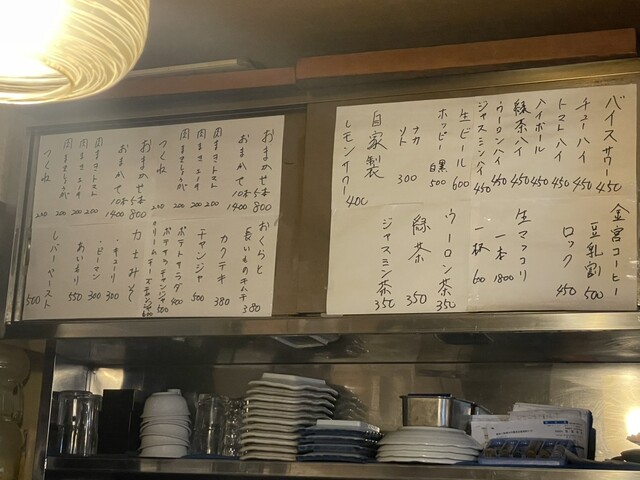 バイスサワー 450
チューハイ 450
トマトハイ 450
ハイボール 450
緑茶ハイ 450
ウーロンハイ 450
ジャスミンハイ 450
生ビール 600
ホッピー 白黒 500
ナカ 300
ソト
自家製
レモンサワー 400
金宮コーヒー
豆乳割 500
ロック 450
生マッコリ
一本 1800
一杯 600
ウーロン茶 350
緑茶 350
ジャスミン茶 350
おまかせ5本 800
おまかせ10本 1400
肉まきトマト 200
肉まきチーズ 200
肉まきしょうが 200
つくね 200
おくらと
長いものキムチ 380
カクテキ 380
チャンジャ 500
ポテトサラダ 400
ポテサラチャンジャ 500
クリームチーズチャンジャ
おまかせ5本 800
おまかせ10本 1400
肉まきトマト 200
肉まきチーズ 200
肉まきしょうが 200
つくね 200
カ士みそ
・キュウリ 300
・ピーマン 300
あいもり 550
レバーペースト 500